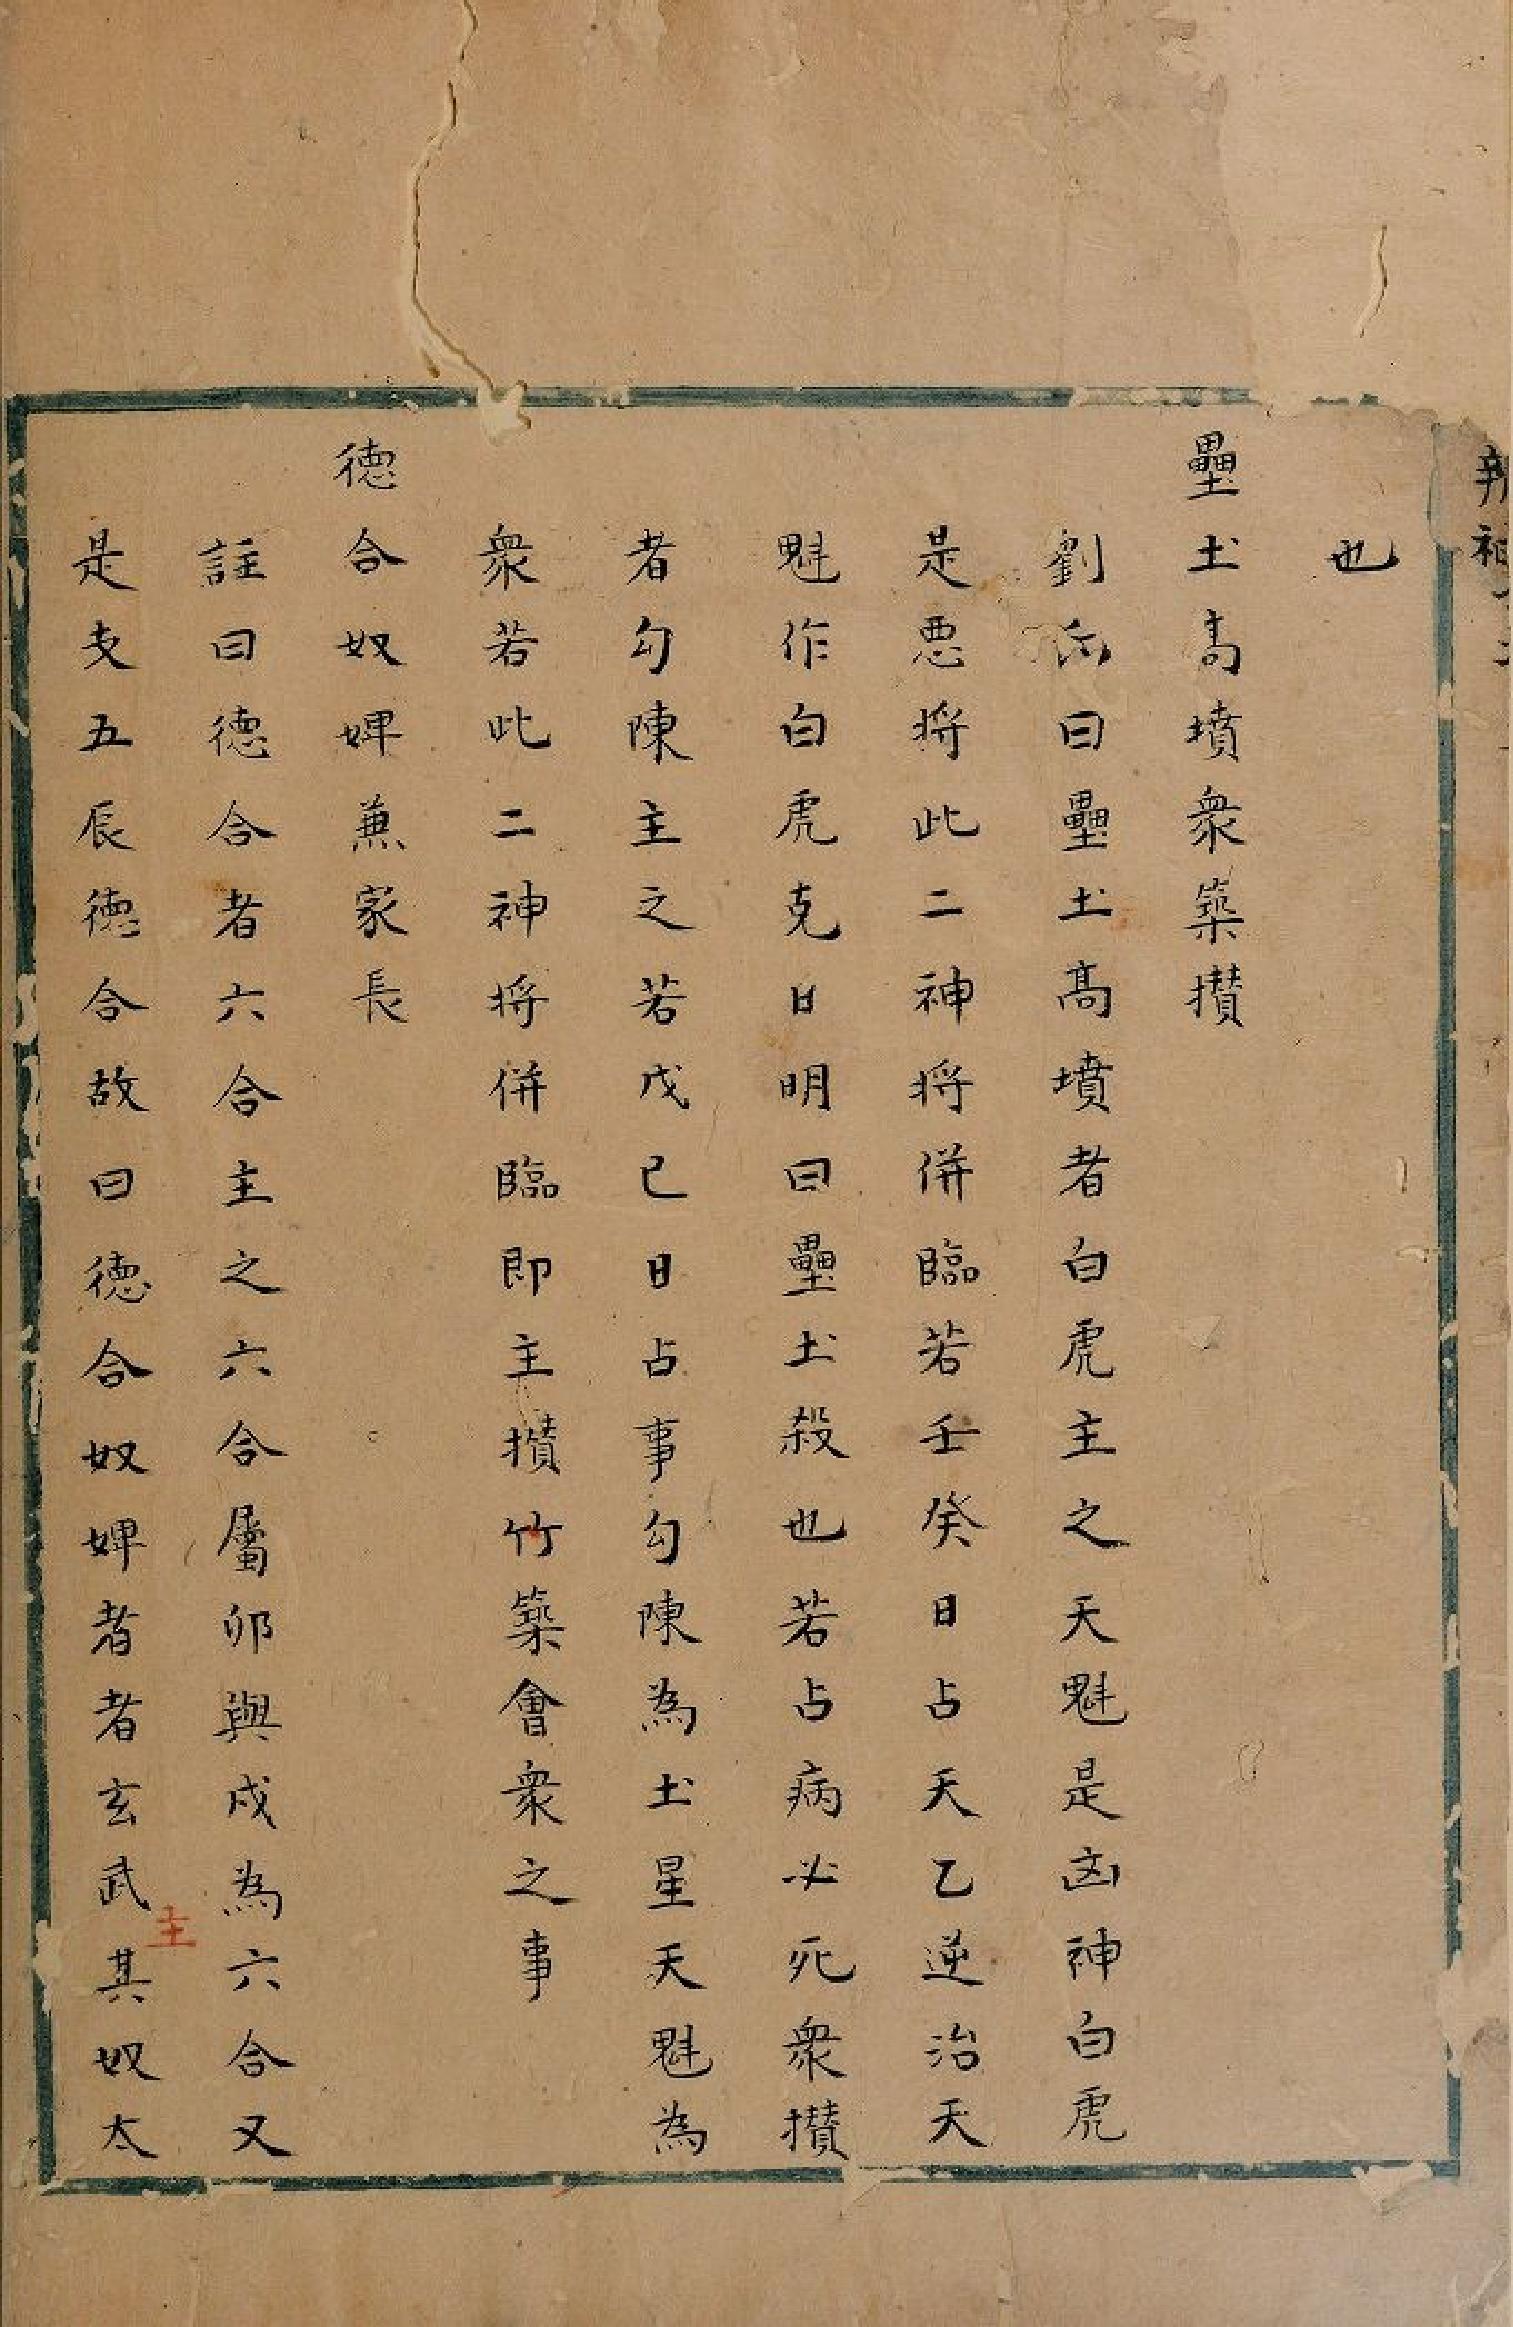 也
壘土高墳衆築攢
劉氏曰壘土高墳者白虎主之天魁是凶神白虎
是惡将此二神将併臨若壬癸日占天乙逆治天
魁作白虎克日明曰壘土殺也若占病必死衆攢
者勾陳主之若戊己日占事勾陳為土星天魁為
衆若此二神将併臨即主攢竹築會衆之事
德合奴婢兼家長
註曰德合者六合主之六合屬卯與戌為六合又
是支五辰德合故曰德合奴婢者者玄武其奴太
主